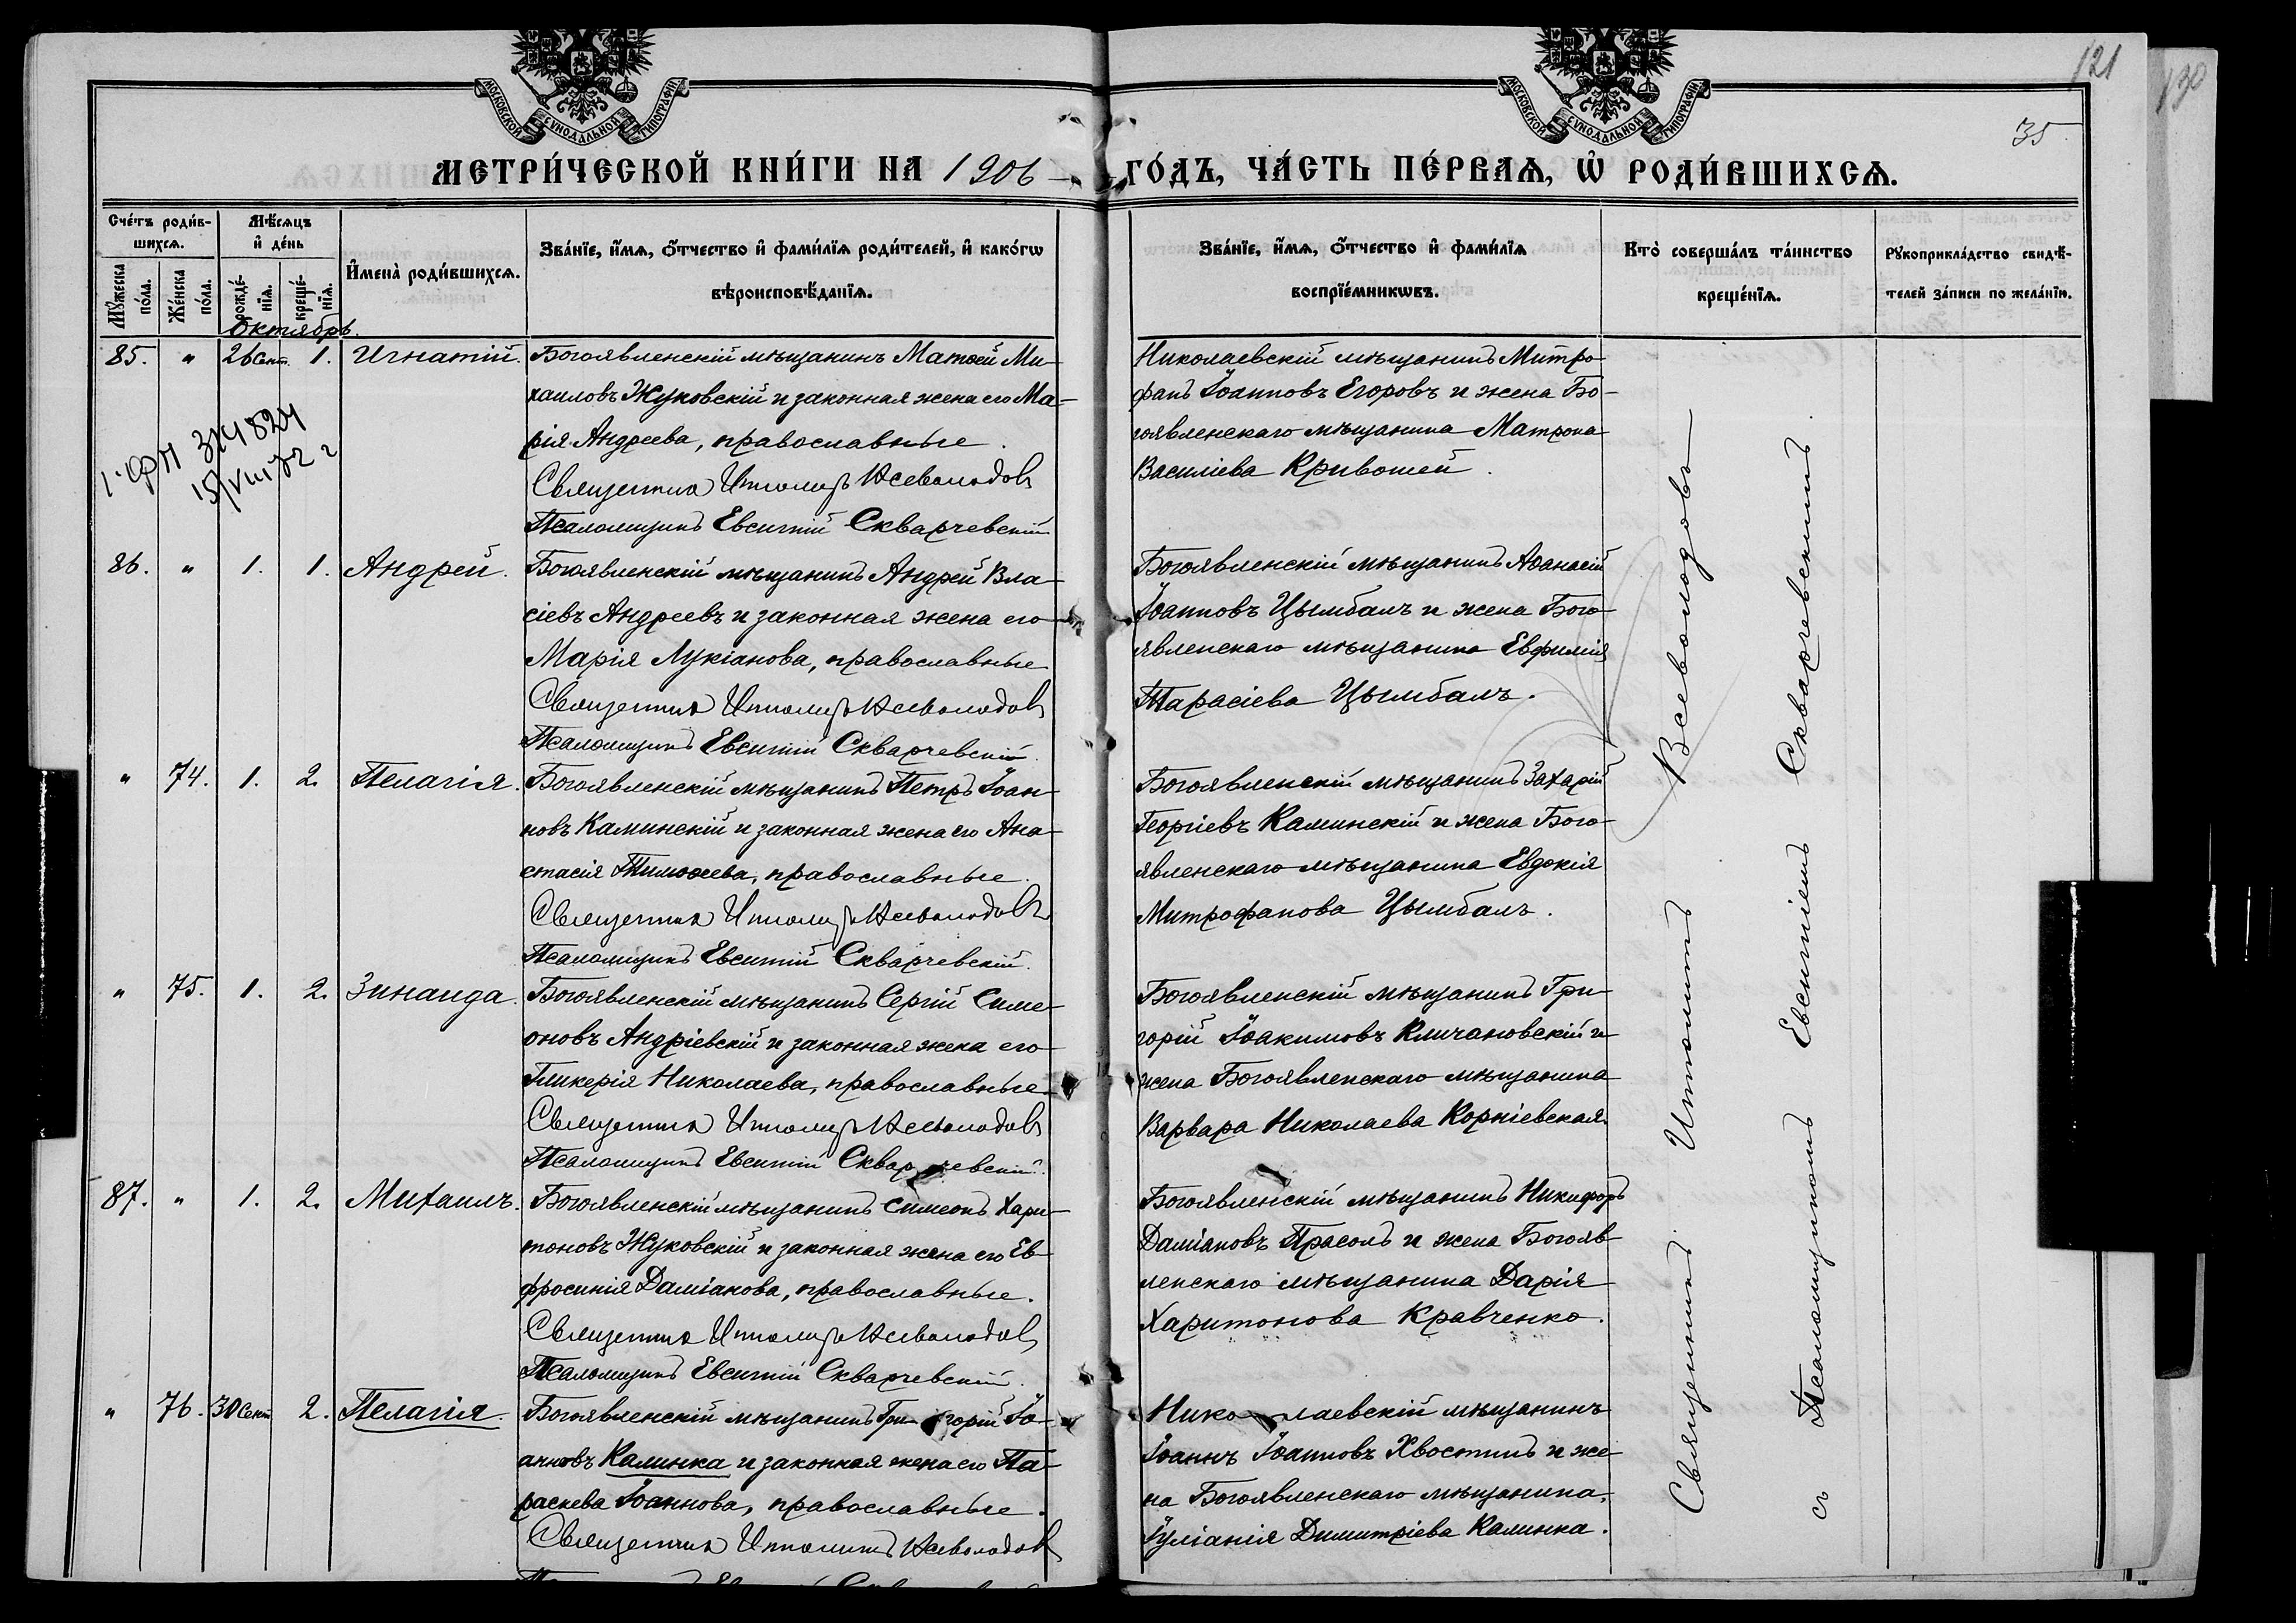 121
130
35
МОСКОВСКОЙ СѴНОДАЛЬНОЙ ТИПОГРАФІИ
МОСКОВСКОЙ СѴНОДАЛЬНОЙ ТИПОГРАФІИ
МЕТРИ́ЧЕСКОЙ КНИ́ГИ НА 1906 ГО́ДЪ, ЧА́СТЬ ПЕ́РВАѦ, Ѡ҆ РОДИ́ВШИХСѦ.
Сче́тъ роди́в-
шихсѧ.
Мꙋ́жеска по́ла.
Же́нска по́ла.
Мѣ́сѧцъ
и҆ де́нь
рожде́-
нїѧ.
креще́-
нїѧ.
И҆мена̀ роди́вшихсѧ.
Зва́нїе, и҆́мѧ, ѻ҆́тчество и҆ фами́лїѧ роди́телей, и҆ како́гѡ
вѣроисповѣ́данїѧ.
Зва́нїе, и҆́мѧ, ѻ҆́тчество и҆ фами́лїѧ
воспрїе́мникѡвъ.
Кто̀ соверша́лъ та́инство
креще́нїѧ.
Рꙋкоприкла́дство свидѣ́-
телей за́писи по жела́нїю.
Октябрь.
85. " 26 Сент. 1. Игнатій. Богоявленскій мѣщанинъ Матѳей Ми-
хаиловъ Жуковскій и законная жена его Ма-
рія Андреева, православные.
Священникъ Ипполитъ Всеволодовъ
Псаломщикъ Евсигній Скварчевскій
15/VIII 72 г
Николаевскій мѣщанинъ Митро-
фанъ Іоанновъ Егоровъ и жена Бо-
гоявленскаго мѣщанина Матрона
Василіева Кривошей.
86. " 1. 1. Андрей. Богоявленскій мѣщанинъ Андрей Вла-
сіевъ Андреевъ и законная жена его
Марія Лукіанова, православные
Священникъ Ипполитъ Всеволодовъ
Псаломщикъ Евсигній Скварчевскій.
Богоявленскій мѣщанинъ Аѳанасій
Іоанновъ Цымбалъ и жена Бого-
явленскаго мѣщанина Евфимія
Тарасіева Цымбалъ.
" 74. 1. 2. Пелагія. Богоявленскій мѣщанинъ Петръ Іоан-
новъ Каминскій и законная жена его Ана-
стасія Тимоѳеева, православные.
Священникъ Ипполитъ Всеволодовъ
Псаломщикъ Евсигній Скварчевскій.
Богоявленскій мѣщанинъ Захарій
Георгіевъ Каминскій и жена Бого-
явленскаго мѣщанина Евдокія
Митрофанова Цымбалъ.
" 75. 1. 2. Зинаида. Богоявленскій мѣщанинъ Сергій Симе-
оновъ Андріевскій и законная жена его
Гликерія Николаева, православные
Священникъ Ипполитъ Всеволодовъ
Псаломщикъ Евсигній Скварчевскій.
Богоявленскій мѣщанинъ Гри-
горій Іоакимовъ Кличановскій и
жена Богоявленскаго мѣщанина
Варвара Николаева Корніевская.
87. " 1. 2. Михаилъ. Богоявленскій мѣщанинъ Симеонъ Хари-
тоновъ Жуковскій и законная жена его Ев-
фросинія Даміанова, православные.
Священникъ Ипполитъ Всеволодовъ
Псаломщикъ Евсигній Скварчевскій.
Богоявленскій мѣщанинъ Никифоръ
Даміановъ Прасолъ и жена Богояв-
ленскаго мѣщанина Дарія
Харитонова Кравченко.
" 76. 30 Сент. 2. Пелагія. Богоявленскій мѣщанинъ Григорій Іо-
анновъ Калинка и законная жена его Па-
раскева Іоаннова, православные.
Священникъ Ипполитъ Всеволодовъ
Николаевскій мѣщанинъ
Іоаннъ Іоанновъ Хвостинъ и же-
на Богоявленскаго мѣщанина,
Іуліанія Димитріева Калинка.
Священникъ Ипполитъ Всеволодовъ
съ Псаломщикомъ Евсигніемъ Скварчевскимъ.